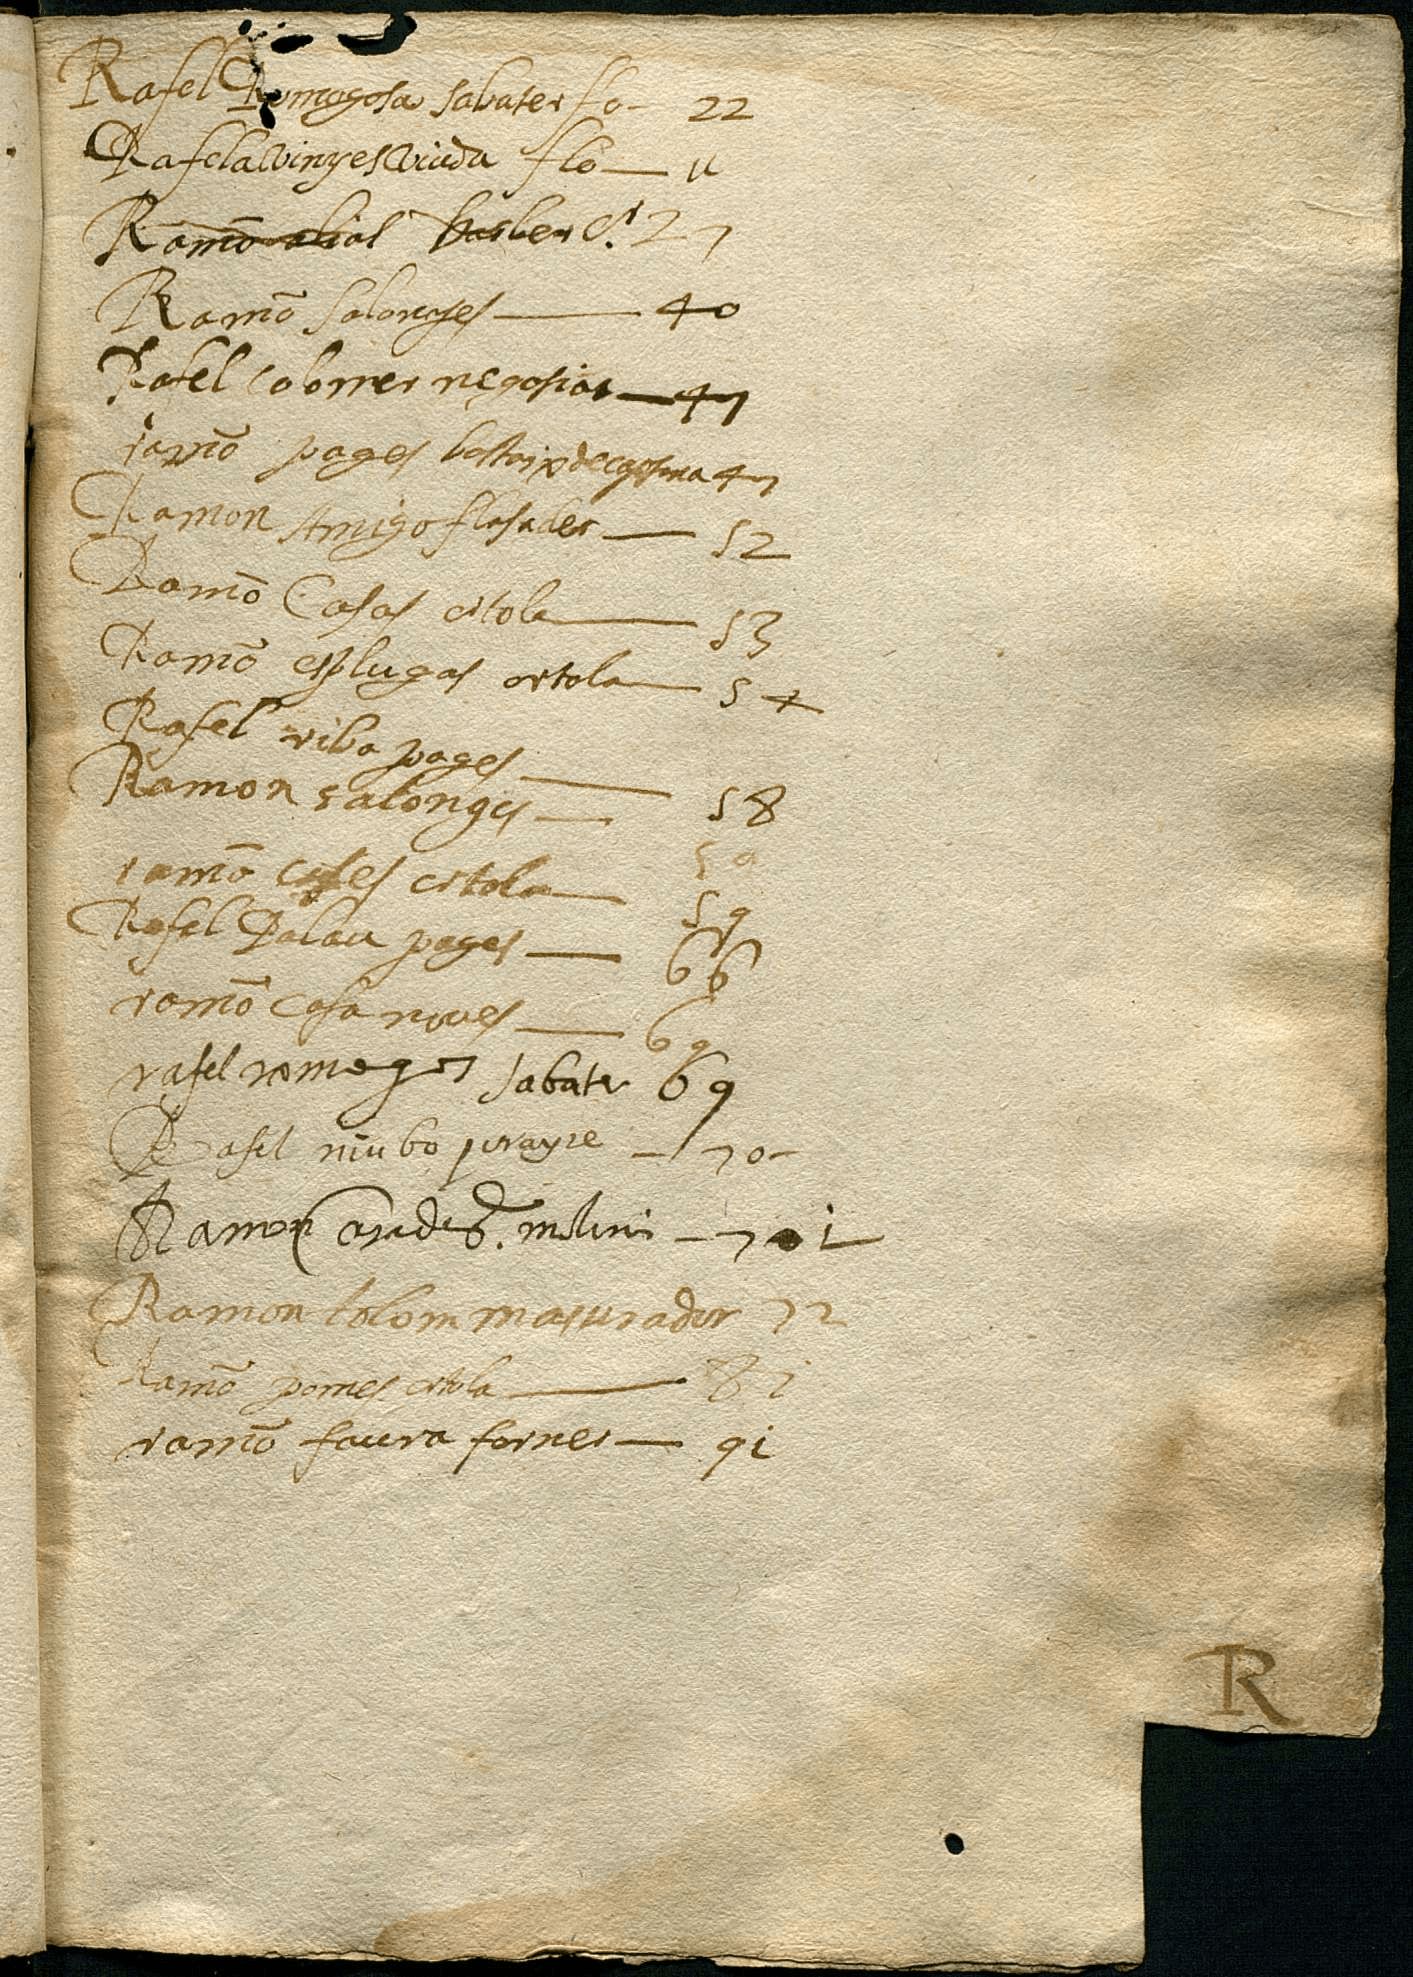 Rafel Romagosa sabater fo- 22
Rafela vinyes viuda flo — 11
Ramō barber 27
Ramō salonges — 40
Rafel colomer negosiant — 47
ramō pages bastaix de capsana 47
Ramon Amigo flasader — 52
Ramō Casas ortola — 53
Ramō esplugas ortola — 54
Rafel riba pages —
Ramon salonges — 58
59
ramō ortola — 59
Rafel Palau pages — 66
ramō casanoves — 69
rafel romegos sabater 69
Rafel niubo parayre — 70-
Ramon molini — 71
Ramon colom masurador 72
Ramō pomes ortola — 81
ramō faura forner — 91
R